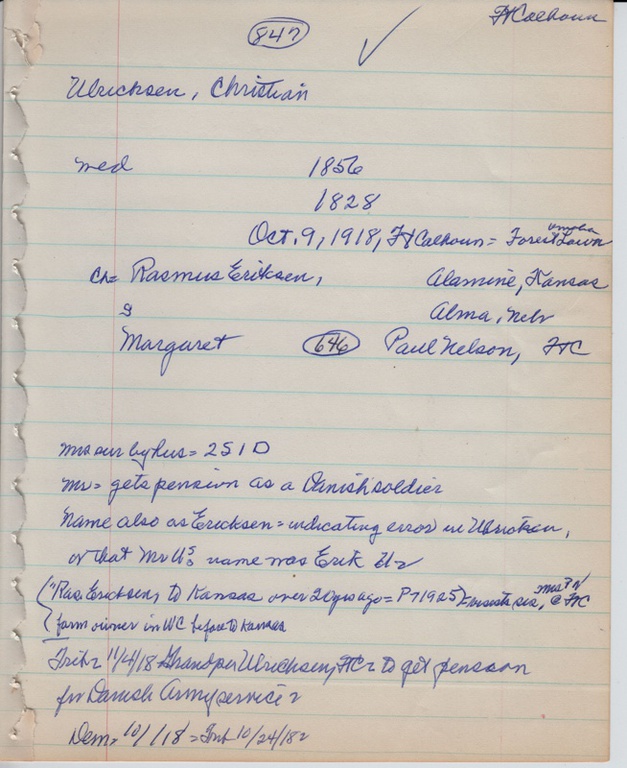 847
Ft Calhoun
Ulricksen, Christian
med 1856
1828
Omaha
Oct. 9, 1918, Ft Calhoun = Forest Lawn
ch= Rasmus Eriksen, Alamine, Kansas
g Alma, Nebr
Margaret 646 Paul Nelson, FtC
Mrs sur by hus = 2S 1D
Mr = gets pension as a Danish soldier
Name also as Ericksen = indicating error in
or that Mr U's name was Erik U
("Ras. Ericksen, to Kansas over 20 yrs ago = P 7/1925) = visits sis, Mrs P N @ FtC
farm owner in WC before to Kansas
Trib 11/4/18 Grandpa Ulrichsen, FtC to get pension
for Danish Army service
Dem 10/ /18 = Trib 10/24/18